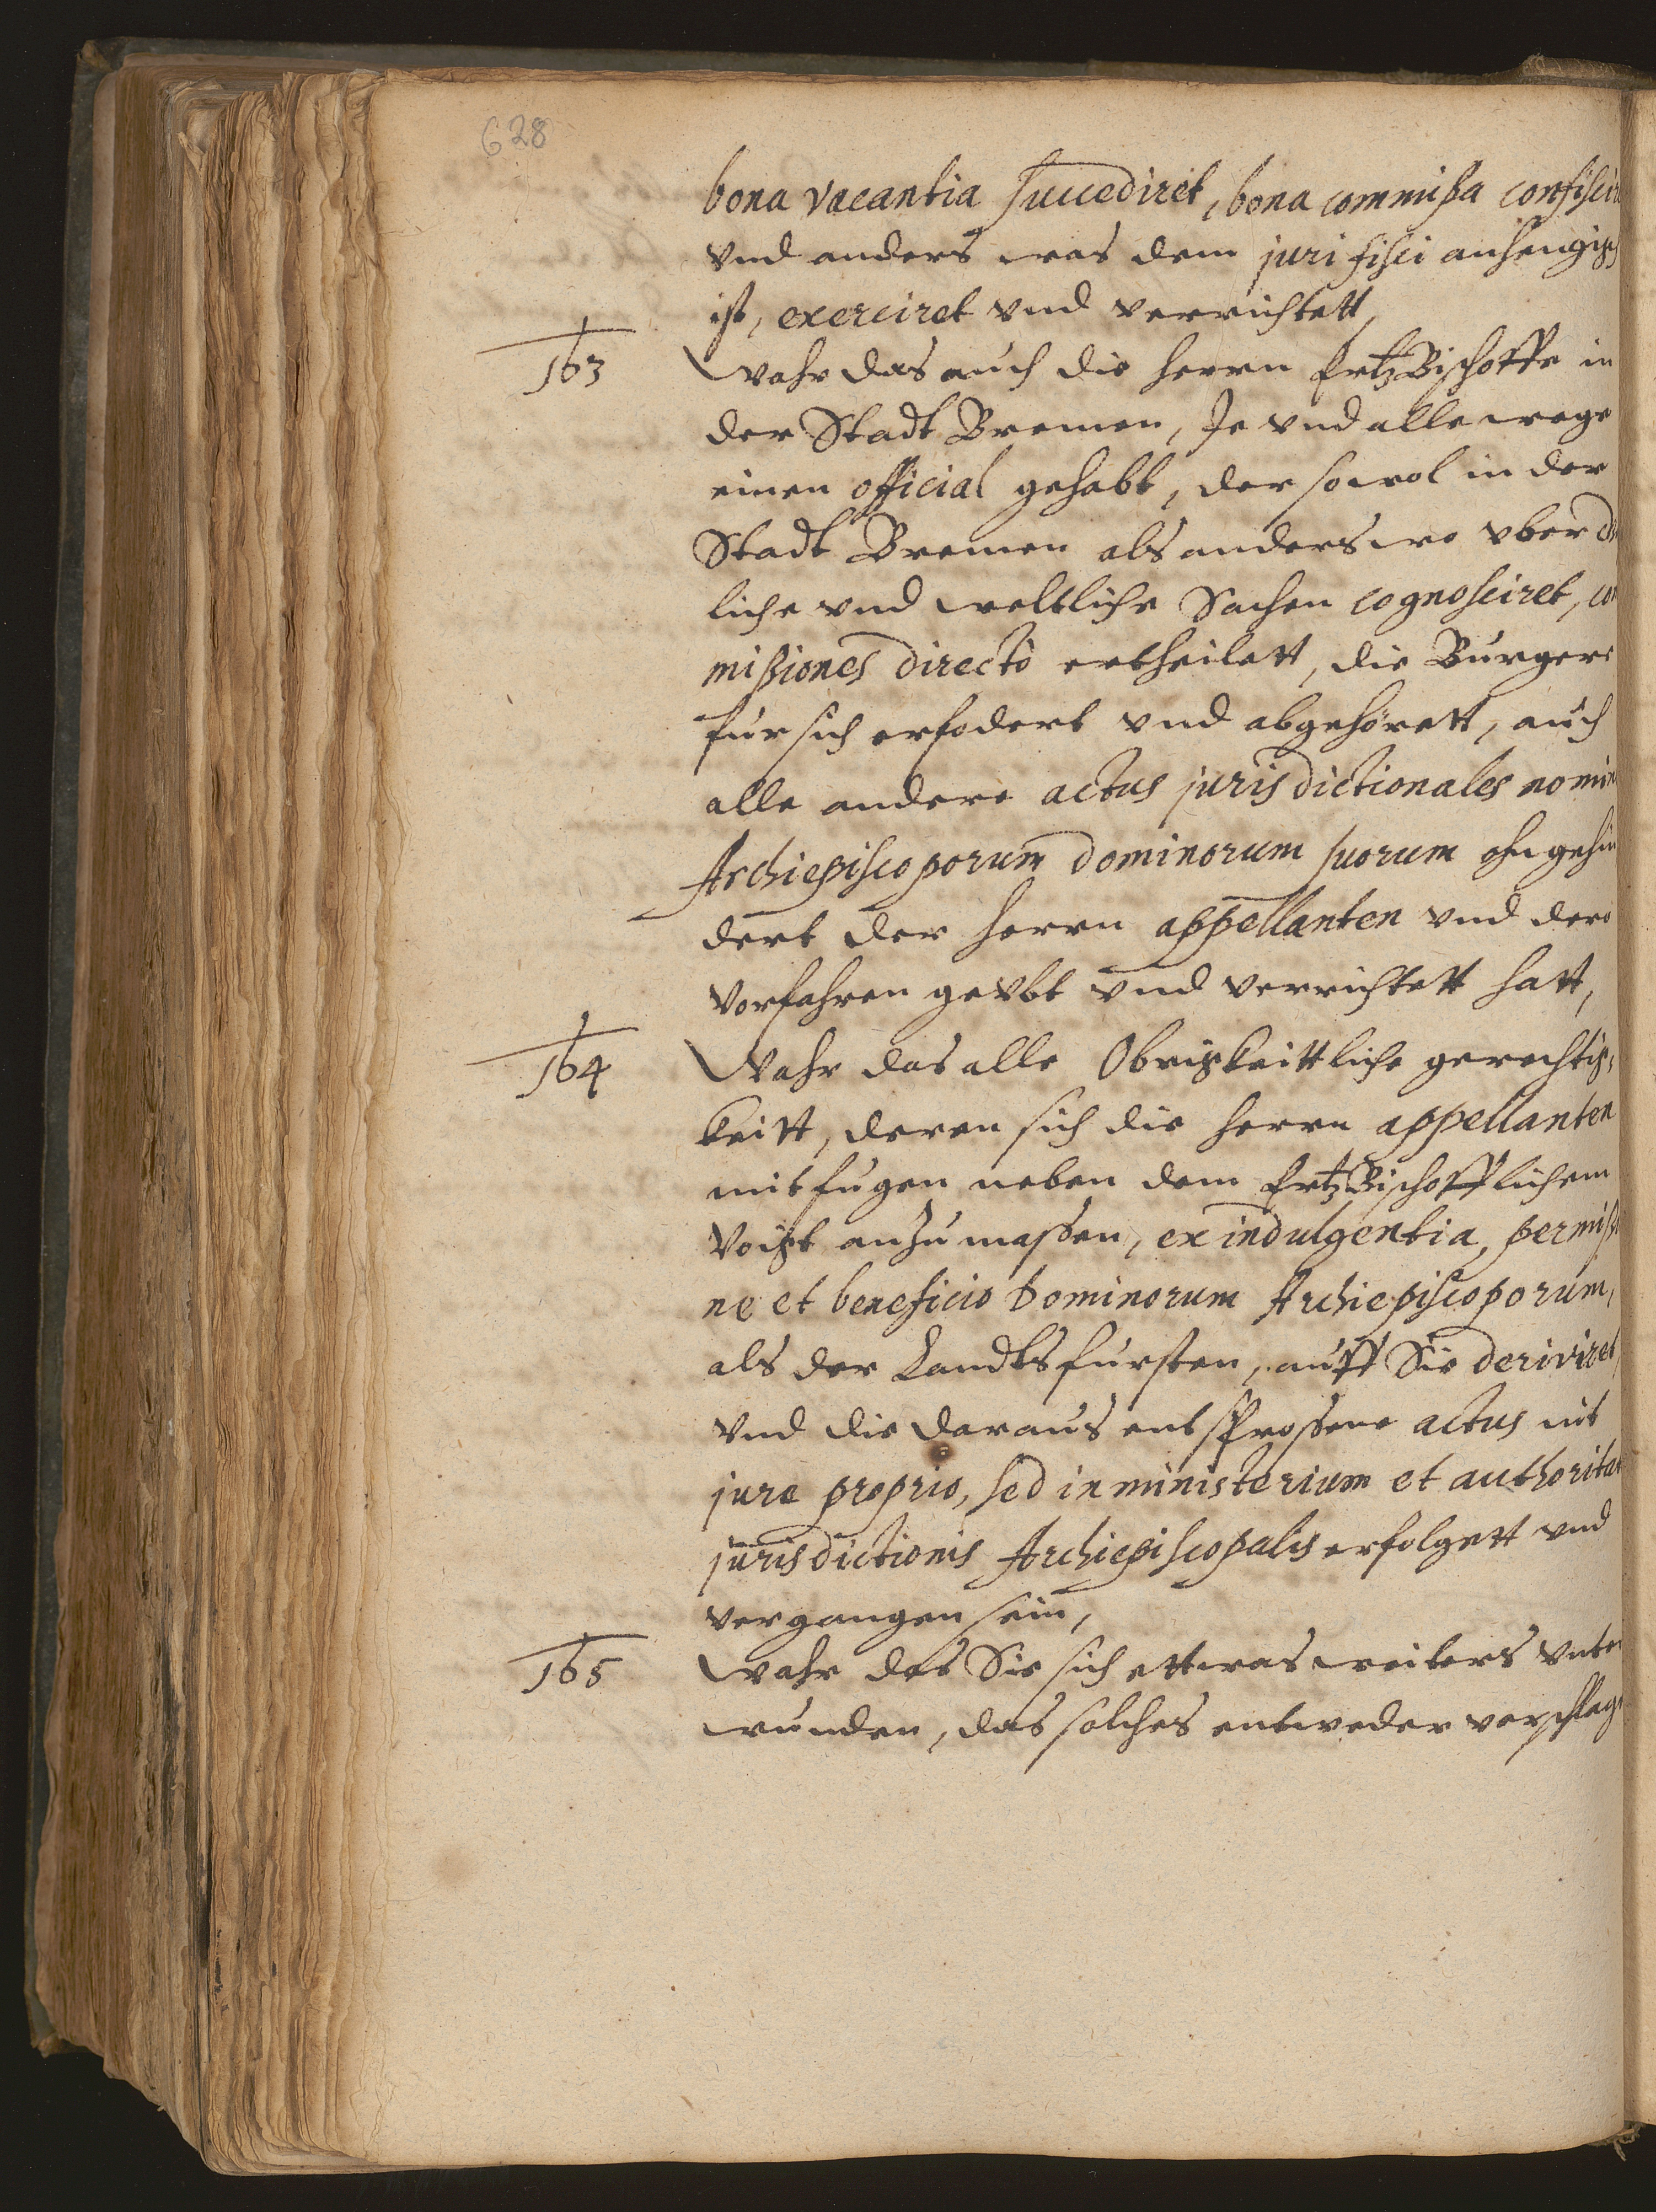 628
bona vacantia succediret, bona commißa confisci
vnd anders was dem juri fisci anhengig
ist, exerciret vnd verrichtett,
163
Wahr das auch die herrn ErtzBischoffe in
der Stadt Bremen, Je vnd allewege
einen official gehabt, der sowol in der
Stadt Bremen als anderswo vber
liche vnd weltliche Sachen cognosciret, co
mißiones directò ertheilett, die Burgere
fur sich erfodert vnd abgehörett, auch
alle andere actus jurisdictionales nomin
Archiepiscoporum dominorum suorum ohngehin
dert der herrn appellanten vnd dero
Vorfahren geubt vnd verrichtett hatt,
164
Wahr das alle Obrigkeittliche gerechtig,
keitt, deren sich die herrn appellanten
mit fugen neben dem ErtzBischofflichem
Voigt anzumassen, ex indulgentia, permiß
ne et beneficio Dominorum Archiepiscoporum,
als der Landtsfursten, auff Sie deriviret,
Vnd die daraus entsprossene actus nit
jure proprio, sed in ministerium et authoritat
jurisdictionis Archiepiscopalis erfolgett vnd
vergangen sein,
165
Wahr das Sie sich ettwas weiters vnter
wunden, das solches entweder verschlag